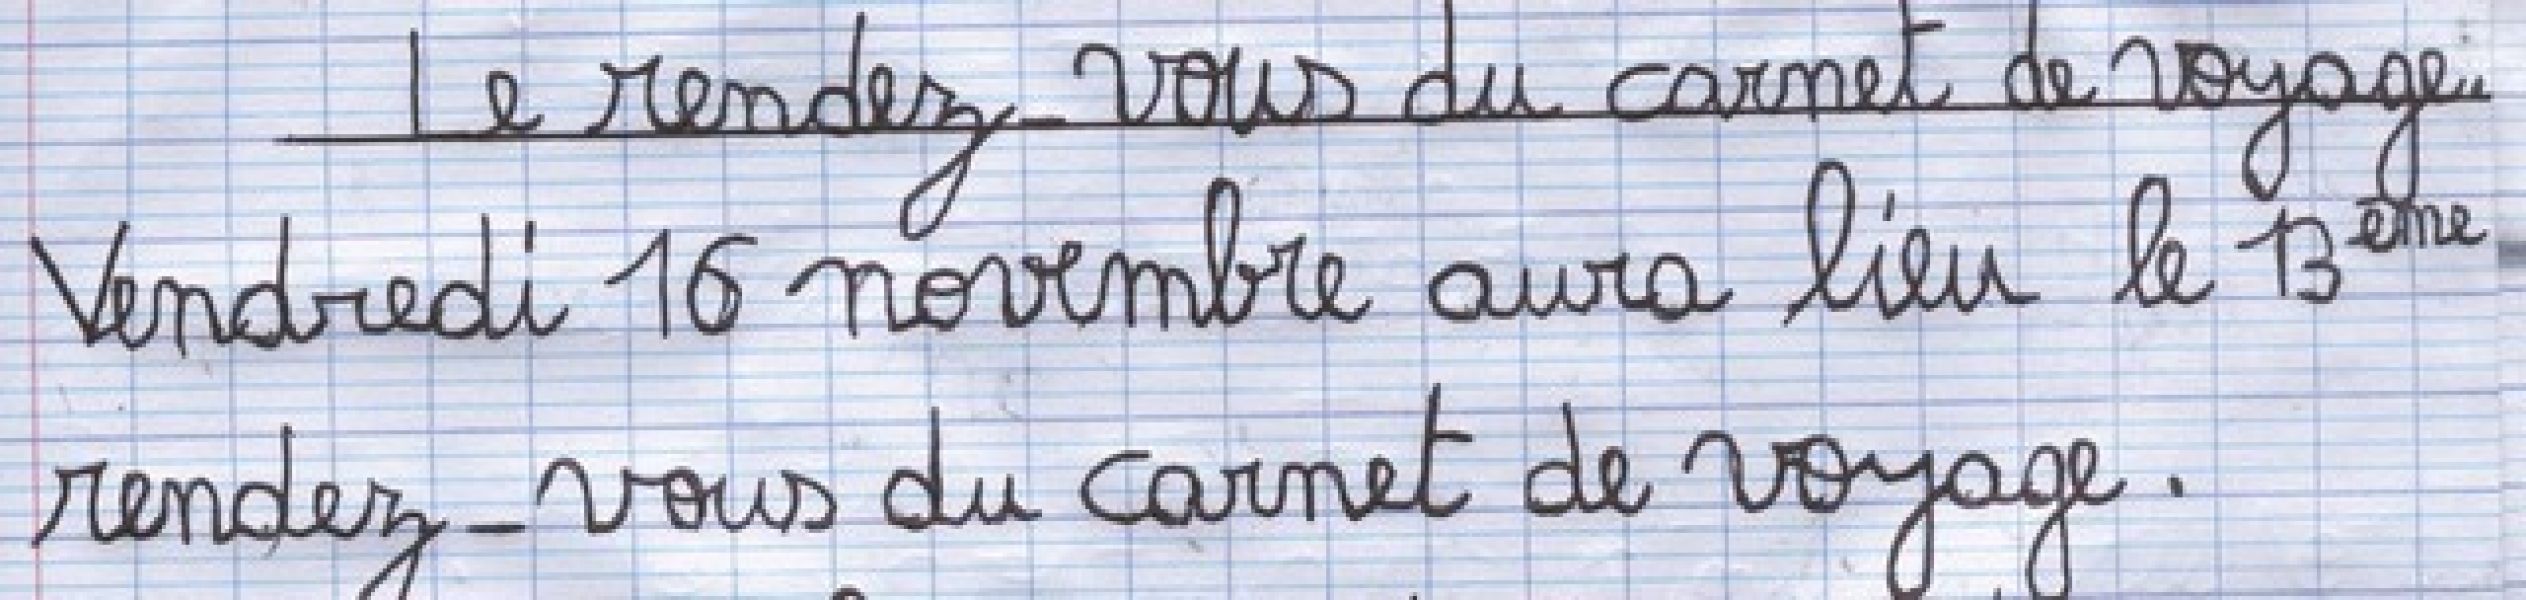 Le rendez-vous du carnet de voyage..
Vendredi 16 novembre aura lieu le 13ème
rendez-vous du carnet de voyage.